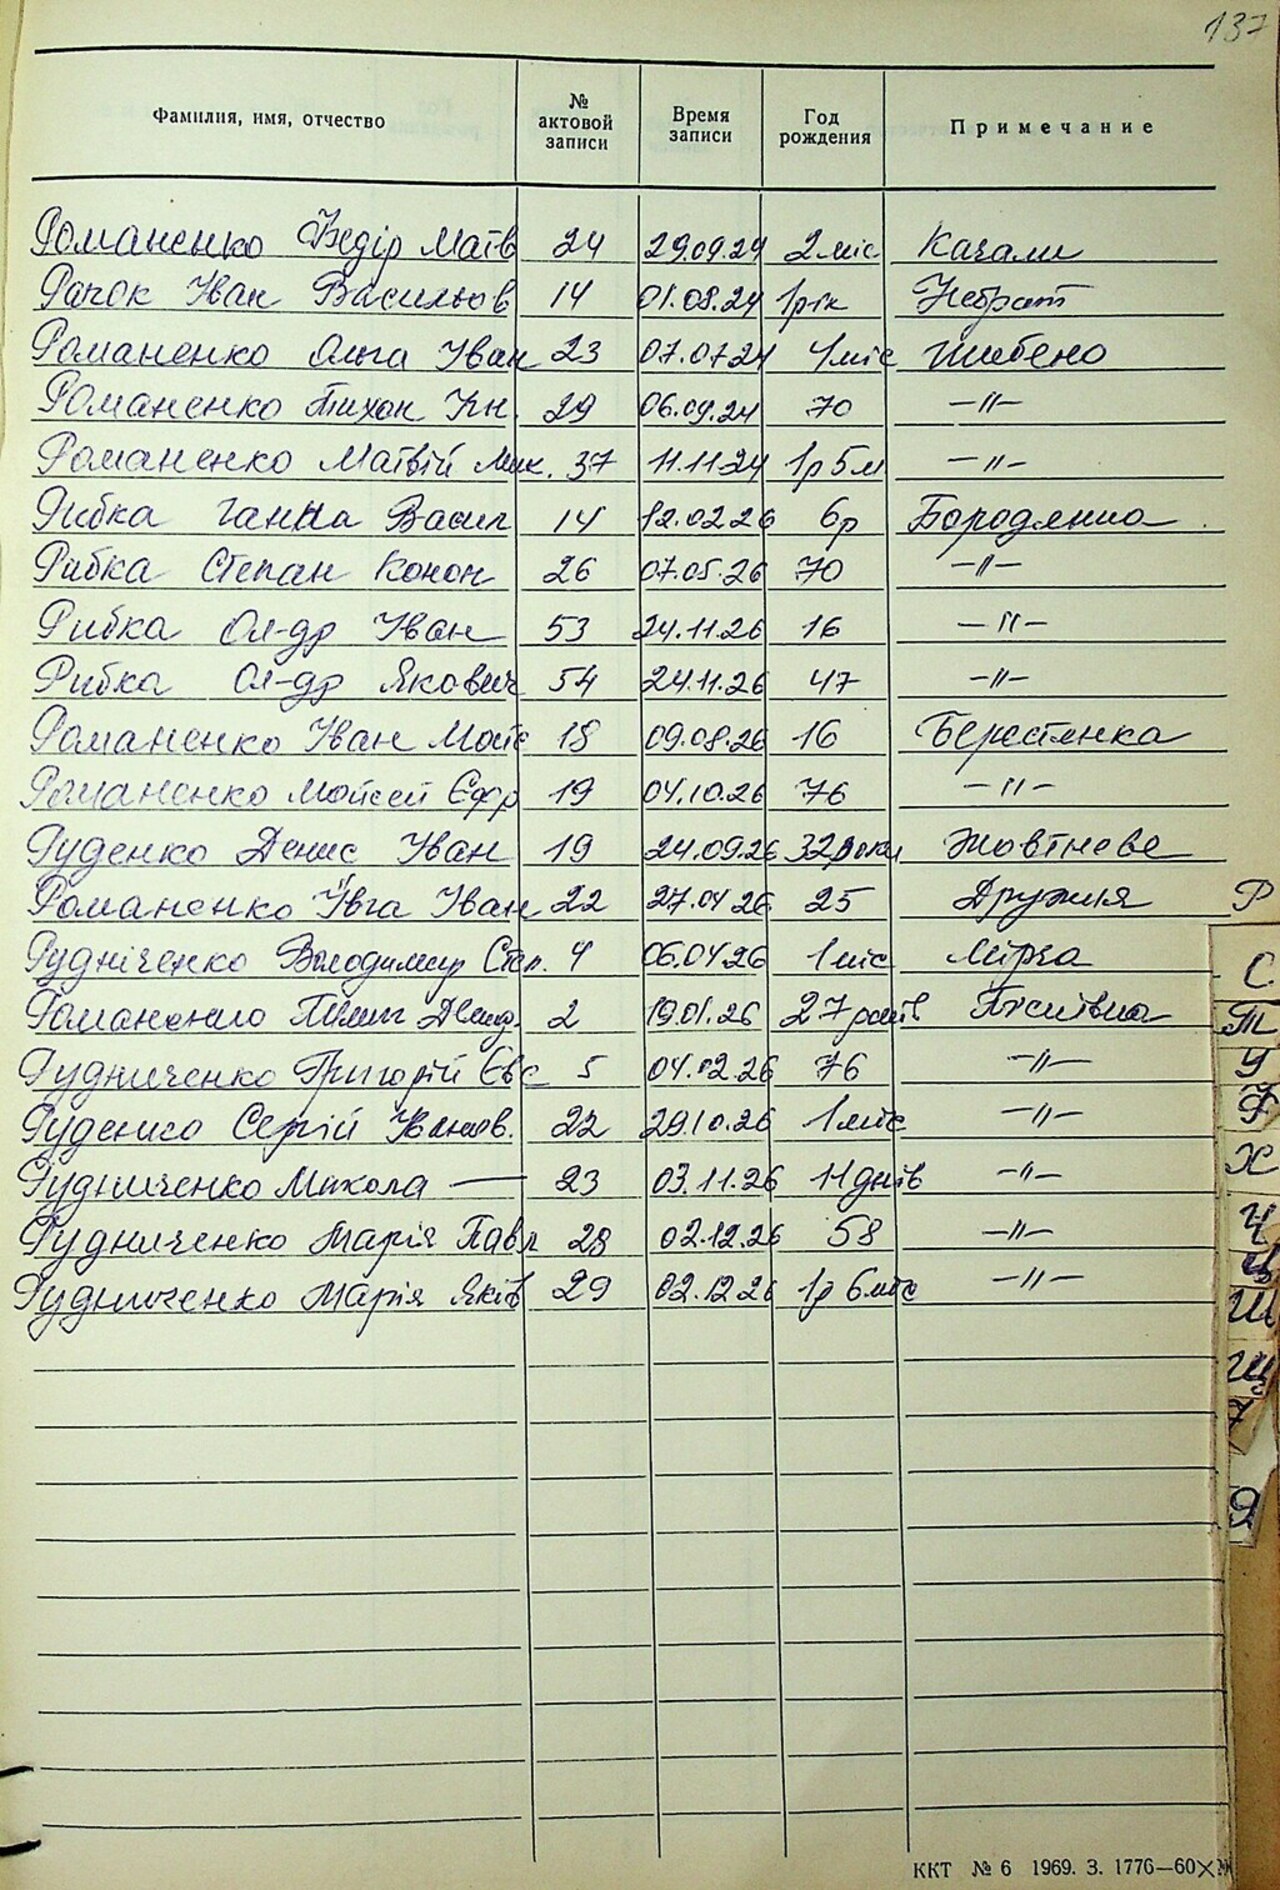 137
Фамилия, имя, отчество № актовой записи Время записи Год рождения Примечание
Романенко Федір Матв 24 29.09.24 2 міс Качали
Рапок Іван Васильов 14 01.08.24 1рік Небрат
Романенко Ольга Іван 23 07.07.24 4міс Шибено
Романенко Тихон Кн. 29 06.09.24 70 —//—
Романенко Матвій Мих. 37 11.11.24 1р 5м —//—
Рибка Ганна Васил 14 12.02.26 6р Бородянка
Рибка Степан Конон 26 07.05.26 70 —//—
Рибка Ол-др Іван 53 24.11.26 16 —//—
Рибка Ол-др Якович 54 24.11.26 47 —//—
Романенко Іван Мойс 18 09.08.26 16 Берестянка
Романенко Мойсей Єфр 19 04.10.26 76 —//—
Руденко Денис Іван 19 24.09.26 32роки Жовтневе
Романенко Ївга Іван 22 27.04.26 25 Дружня Р
Рудніченко Володимир Степ. 4 06.04.26 1 міс Мірча С
Романенко Пилип 2 19.01.26 27 років Т
Рудниченко Григорій Євс 5 04.02.26 76 —//— У
Руденко Сергій Іванов. 22 29.10.26 1 міс —//— Ф
Рудниченко Микола — 23 03.11.26 11 днів —//— Х
Рудниченко Марія Павл 28 02.12.26 58 —//— Ч
Рудниченко Марія Яків 29 02.12.26 1р 6міс —//— Ц
Ш
Щ
Я
ККТ № 6 1969. З. 1776—60×